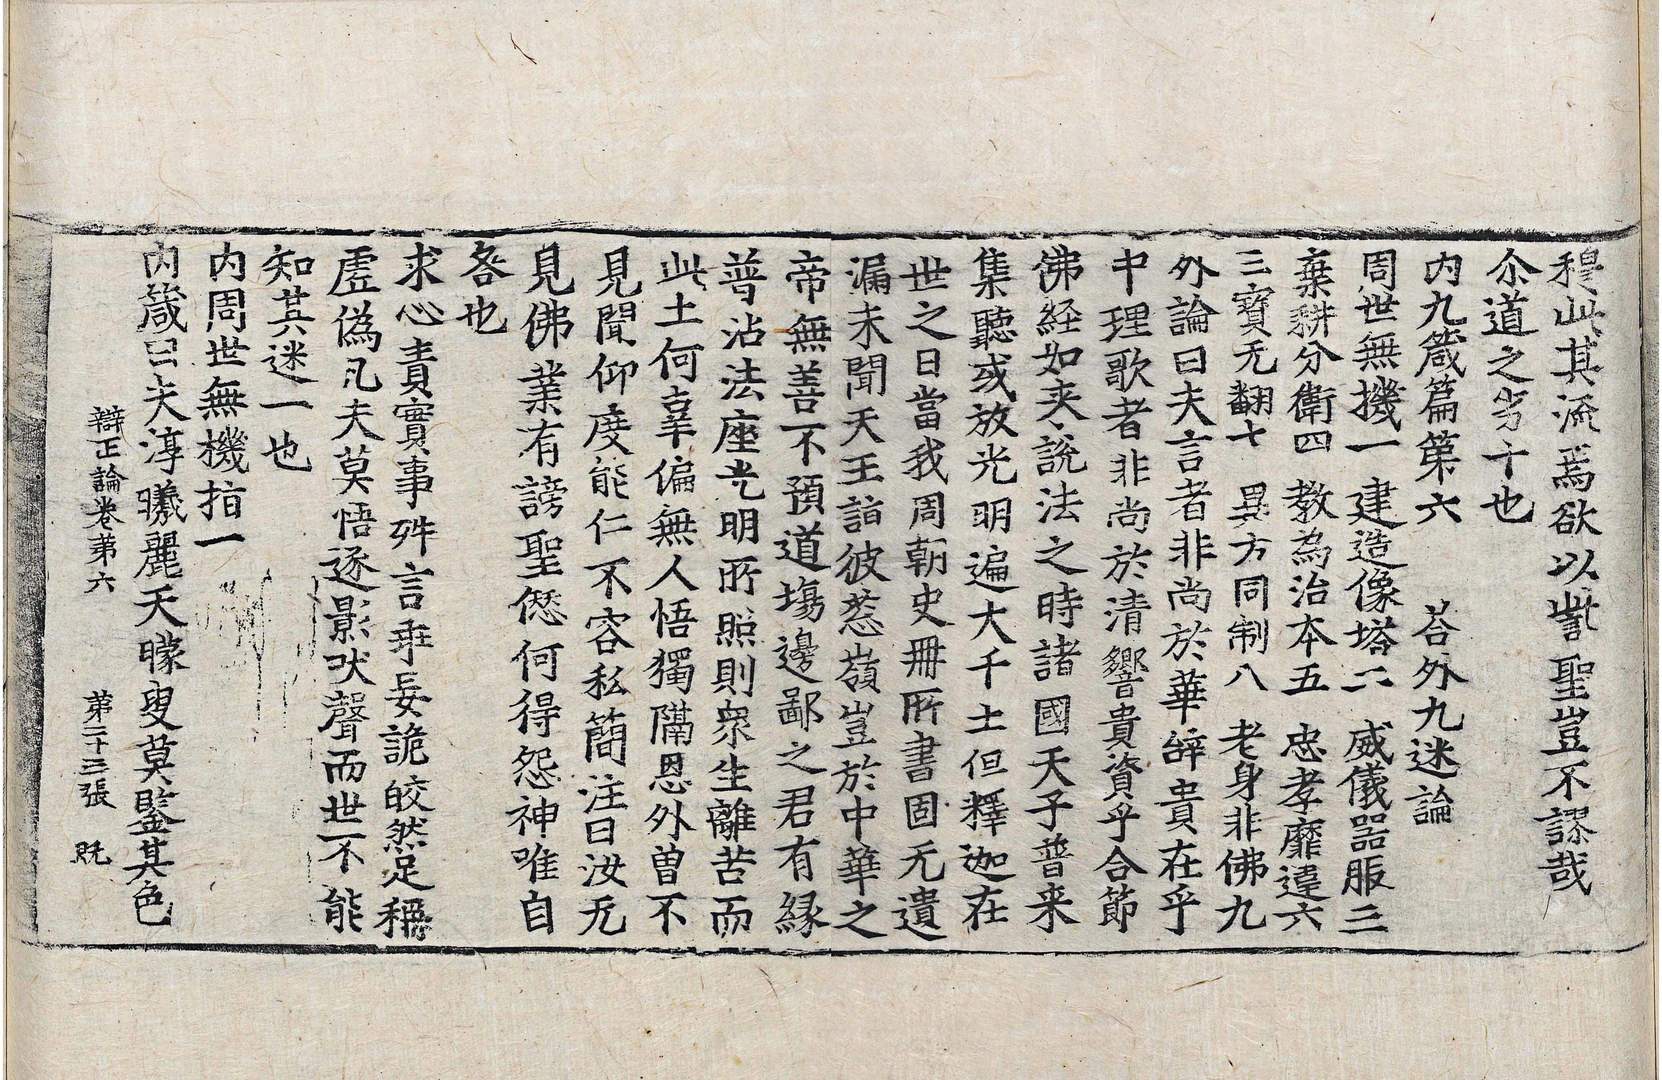 穆此其流焉欲以訾聖豈不謬哉
尒道之劣十也
内九箴篇第六　荅外九迷論
周世無機一　建造像塔二　威儀器服三
棄耕分衛四　教為治本五　忠孝靡違六
三寶无翻七　異方同制八　老身非佛九
外論曰夫言者非尚於華辞貴在乎
中理歌者非尚於清響貴資乎合節
佛経如来說法之時諸國天子普来
集聽或放光明遍大千土但釋迦在
世之日當我周朝史冊所書固无遺
漏未聞天王詣彼葱嶺豈於中華之
帝無善不預道塲邊鄙之君有緣
普沾法座光明所照則衆生離苦而
此土何辜偏無人悟獨隔恩外曽不
見聞仰度能仁不容私簡注曰汝无
見佛業有謗聖愆何得怨神唯自
咎也
求心責實事殊言乖妄詭皎然足稱
虛偽凡夫莫悟逐影吠聲而世不能
知其迷一也
内周世無機指一
内箴曰夫淳曦麗天矇叟莫鑒其色
辯正論卷第六　第二十三張　既